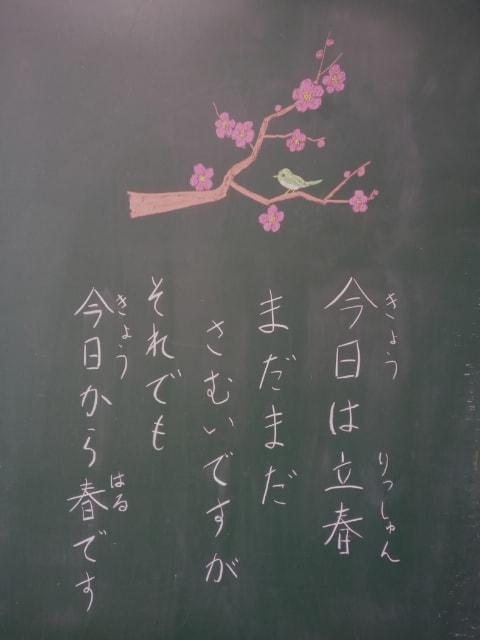 今日は立春
きょう りっしゅん
まだまだ
さむいですが
それでも
今日から春です
きょう はる